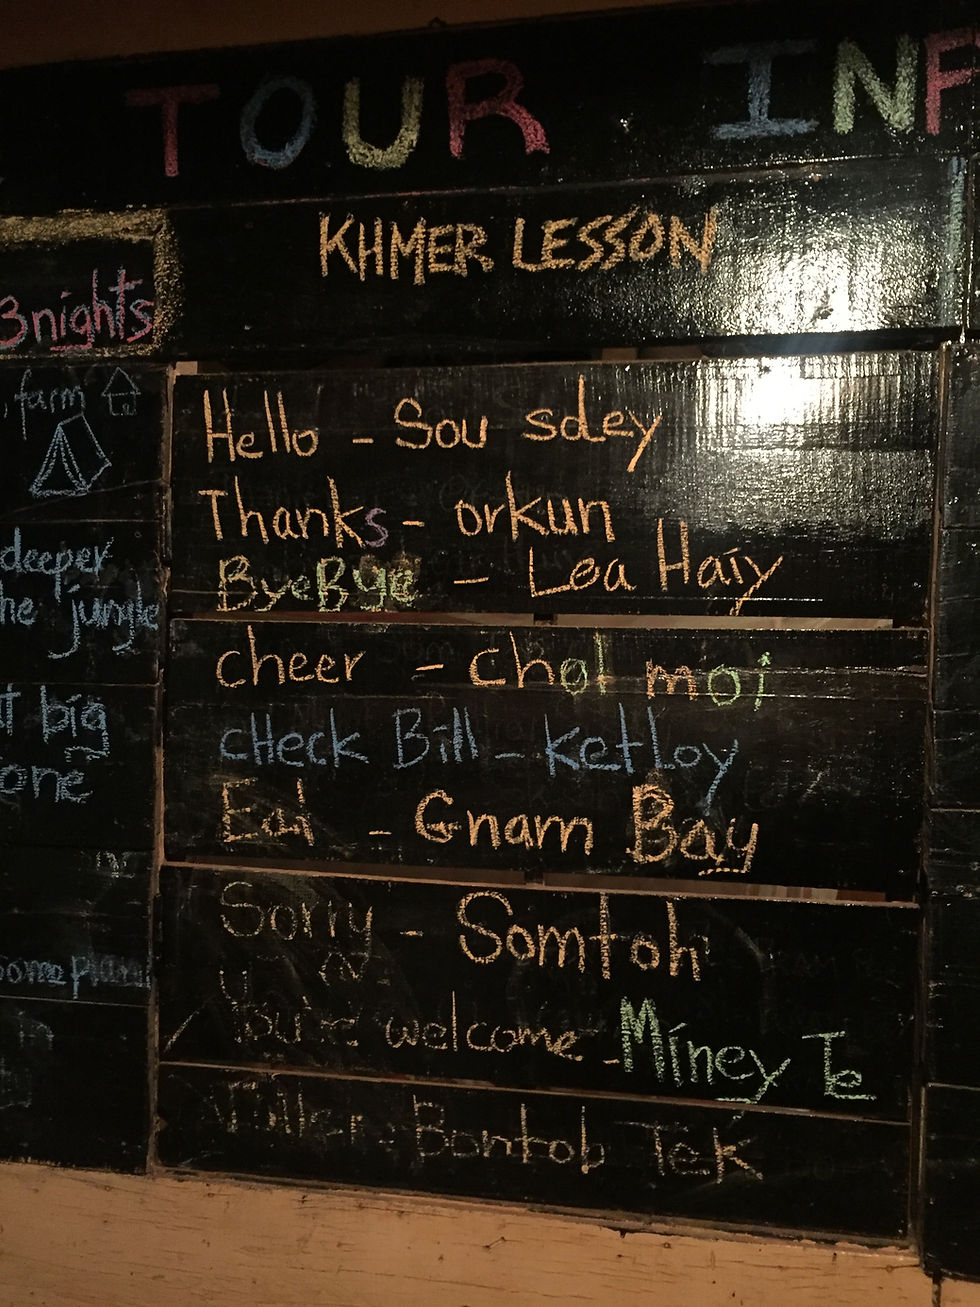 TOUR INF
KHMER LESSON
3nights
farm
deeper
he jungle
big
one
Hello - Sou sdey
Thanks - orkun
ByeBye - Lea Haiy
cheer - chol moi
cHeck Bill - ketloy
Eat - Gnam Bay
Sorry - Somtoh
You're welcome - Miney Te
Bontob Tek